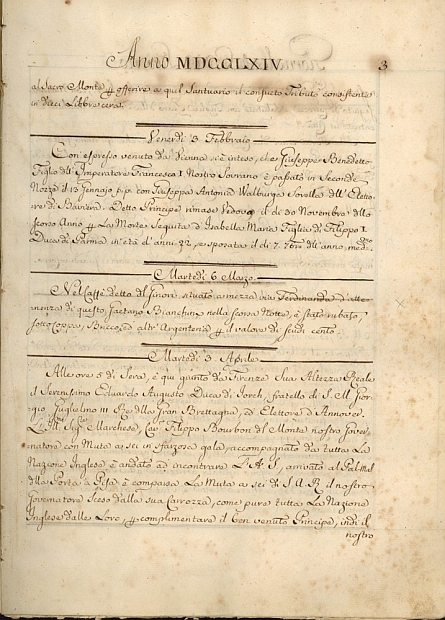 Anno MDCCLXIV.
3
al Sacro Monte p offerire a quel Santuario il consueto Tributo consistente
in dieci Libbre cera.
Venerdì 3 Febbraio
Con espresso venuto da Vienna si è inteso, che Giuseppe Benedetto
Figlio dell' Imperatore Francesco I Nostro Sovrano è passato in Seconde
Nozze il 13 Gennajo p.p. con Giuseppa Antonia Walburga Sorella dell' Eletto-
re di Baviera. Detto Principe rimase Vedovo il dì 30 Novembre dello
scorso Anno p La Morte seguita d' Isabella Maria Figlia di Filippo I
Duca di Parma in età d' anni 22, sposata il dì 7. 7bre dell' anno med.mo
Martedì 6 Marzo.
Nel Caffè detto del Giappone situato a mezza via Ferdinanda d' atte-
nenza di questo Gaetano Bianchini nella scorsa Notte, è stato rubato,
sottocoppa, Bricco, ed altr' Argenteria p il valore di scudi cento.
Martedì 3 Aprile
Alle ore 5 di Sera, è qui giunto da Firenze Sua Altezza Reale
il Serenissimo Eduardo Augusto Duca di Jorch, fratello di S. M. Gior-
gio Guglielmo III Re della Gran Brettagna, ed Elettore d' Annover.
Marchese, Filippo Bourbon del Monte nostro Gover-
natore con Muta a sei in sfarzosa gala, accompagnato da tutta La
Nazione Inglese è andato ad incontrare L' A. S, arrivato al
della Porta a Pisa è comparsa La Muta a sei di S. A. R. il nostro
Governatore Sceso dalla sua Carrozza, come pure tutta La Nazione
Inglese dalle Loro, p complimentare il ben venuto Principe, indi il
nostro